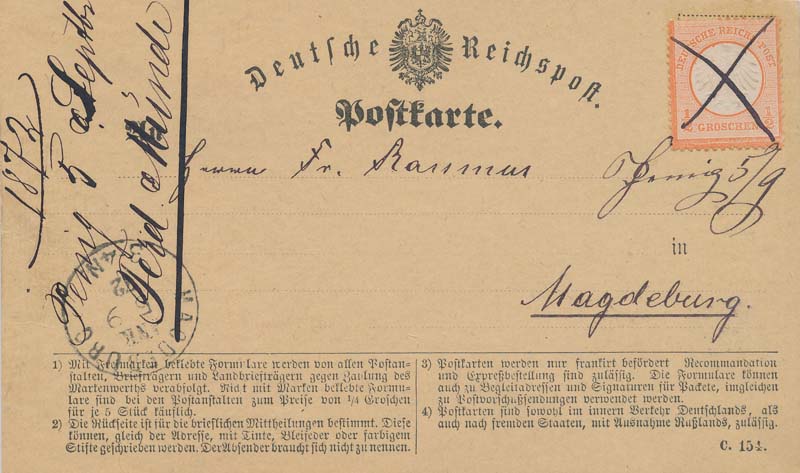 Deutsche Reichspost.
Postkarte.
DEUTSCHE REICHS-POST
GROSCHEN
Herrn Fr. Raumur
Penig 5/9
in
Magdeburg.
1872
Penig 5 Septbr
Ferd. Münde
MAGDEBURG
1) Mit Freimarken beklebte Formulare werden von allen Postan-
stalten, Briefträgern und Landbriefträgern gegen Zahlung des
Markenwerths verabfolgt. Nicht mit Marken beklebte Formu-
lare sind bei den Postanstalten zum Preise von 1/4 Groschen
für je 5 Stück käuflich.
2) Die Rückseite ist für die brieflichen Mittheilungen bestimmt. Diese
können, gleich der Adresse, mit Tinte, Bleifeder oder farbigem
Stifte geschrieben werden. Der Absender braucht sich nicht zu nennen.
3) Postkarten werden nur frankirt befördert Recommandation
und Expreßbestellung sind zulässig. Die Formulare können
auch zu Begleitadressen und Signaturen für Packete, imgleichen
zu Postvorschußsendungen verwendet werden.
4) Postkarten sind sowohl im innern Verkehr Deutschlands, als
auch nach fremden Staaten, mit Ausnahme Rußlands, zulässig.
C. 154.